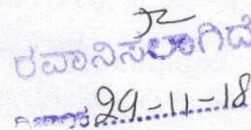 ರವಾನಿಸಲಾಗಿದೆ
29-11-18